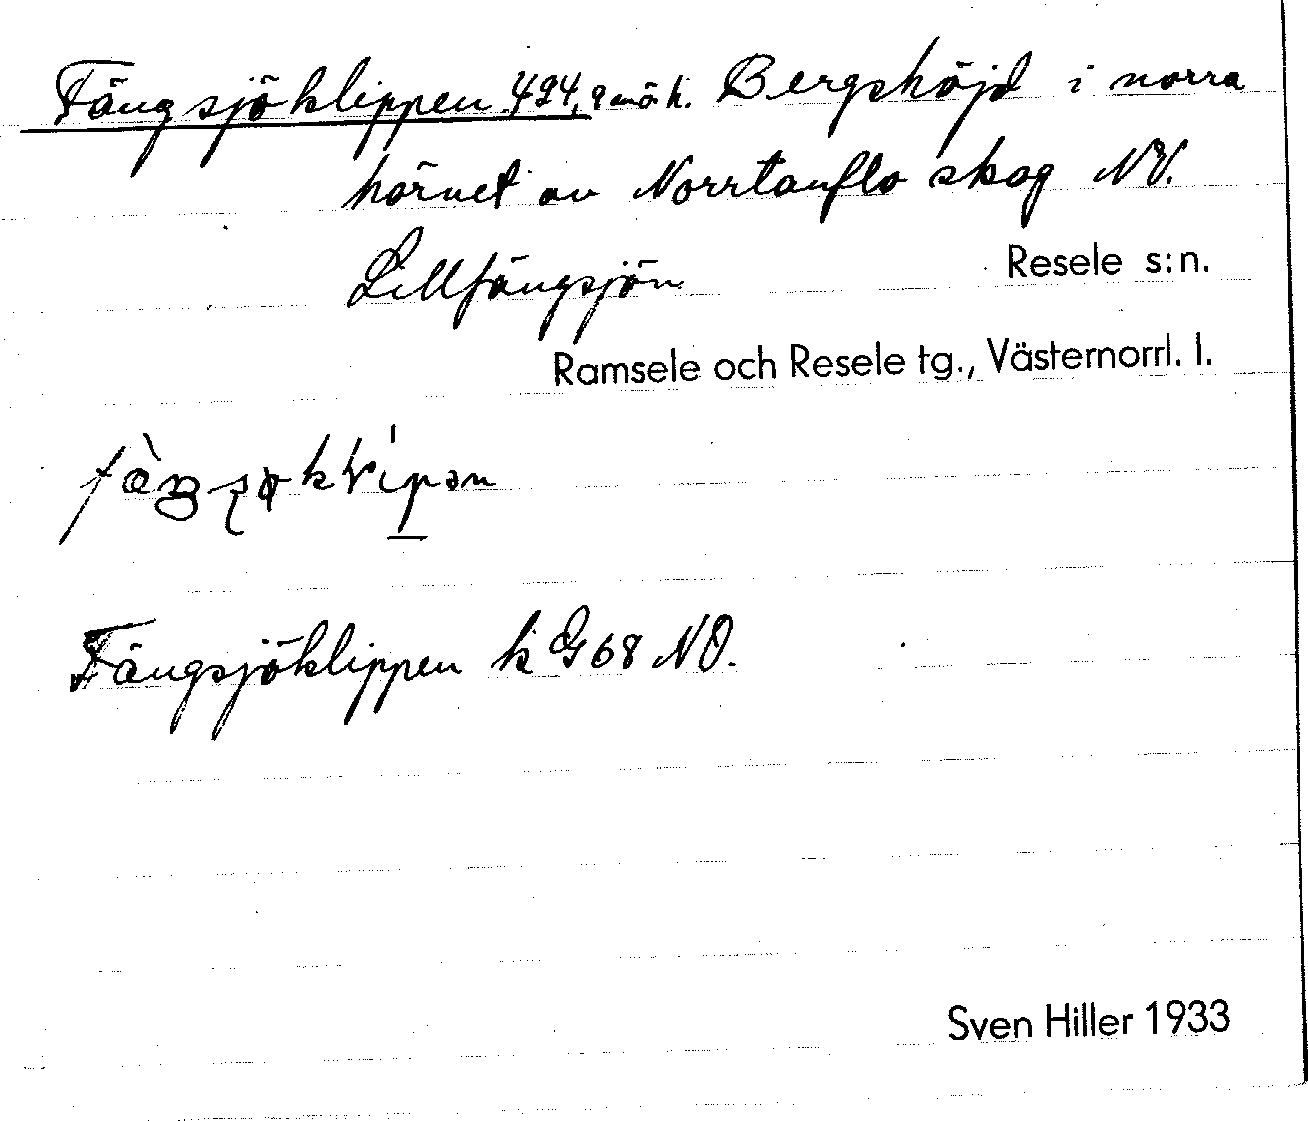 Fängsjöklippen 424,9 mö.h. Bergshöjd i norra
hörnet av Norrtanflo skog NV.
Lillfängsjön. Resele s:n.
Ramsele och Resele tg., Västernorrl. l.
Fängsjöklippen k G68 NO.
Sven Hiller 1933